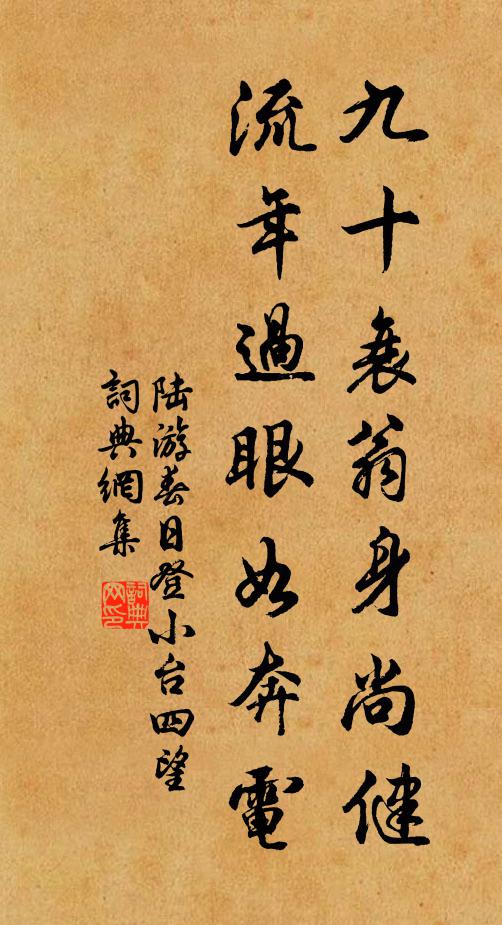 九十衰翁身尚健
流年過眼如奔電
陆游春日登小台四望
詞典網集
詞典網印